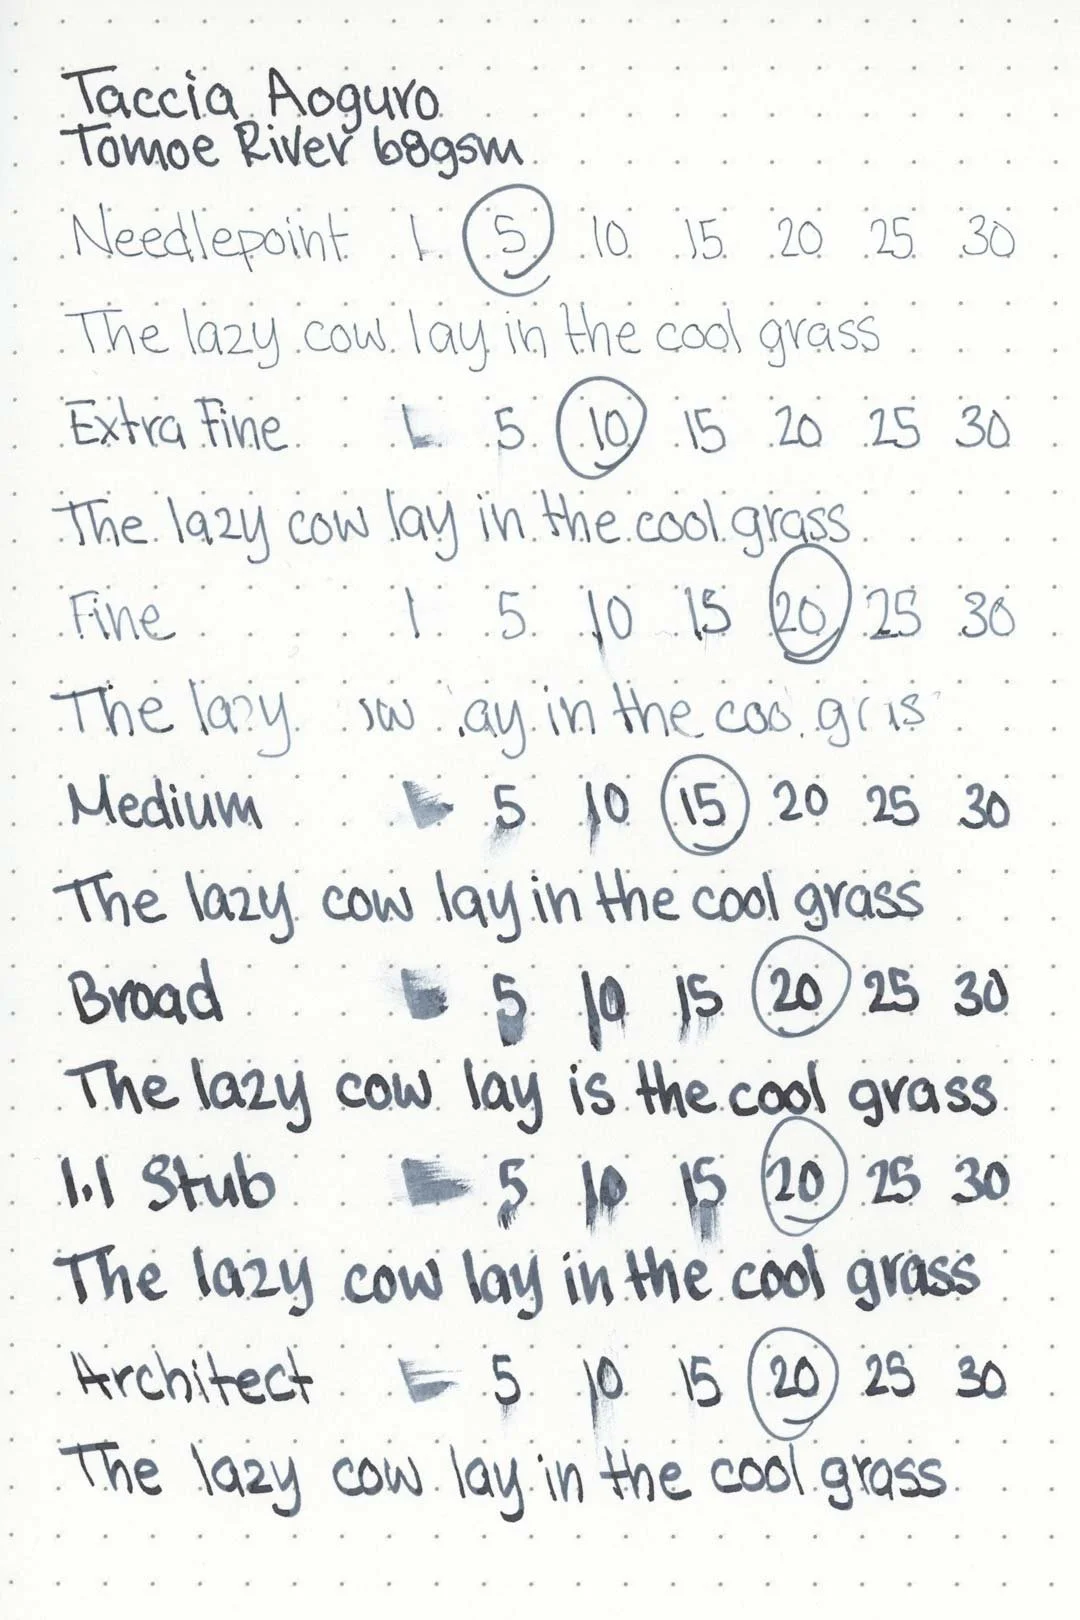 Taccia Aoguro
Tomoe River 68gsm
Needlepoint 1 5 10 15 20 25 30
The lazy cow lay in the cool grass
Extra Fine 1 5 10 15 20 25 30
The lazy cow lay in the cool grass
Fine 1 5 10 15 20 25 30
The lazy ay in the
Medium 5 10 15 20 25 30
The lazy cow lay in the cool grass
Broad 5 10 15 20 25 30
The lazy cow lay is the cool grass
1.1 Stub 5 10 15 20 25 30
The lazy cow lay in the cool grass
Architect 5 10 15 20 25 30
The lazy cow lay in the cool grass